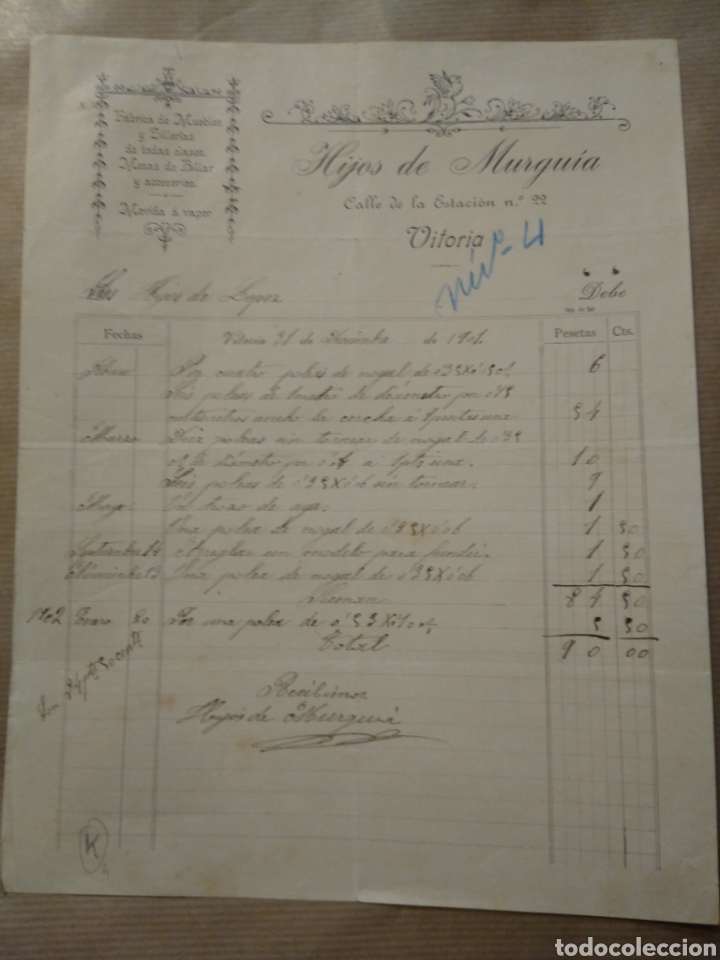 Fábrica de Muebles
y Sillerías
de todas clases.
Mesas de Billar
y accesorios.
Movida á vapor
Hijos de Murguía
Calle de la Estación n.º 22
Vitoria
núº 4
Hijos de Lopez
Debe
Fechas
Vitoria 31 de Diciembre de 1901.
Pesetas Cts.
Febrero Por cuatro poleas de nogal de 6
Seis poleas de 1 metro de diámetro por
centímetros ancho de cercha á una 54
Marzo Diez poleas sin tornear de nogal de
diámetro por á 1 pts una. 10
Seis poleas de sin tornear. 9
Mayo Un trozo de 1
Una polea de nogal de 1 50
Septiembre 14 Arreglar un modelo para fundir. 1 50
Diciembre 13 Una polea de nogal de 1 50
Suman 84 50
1902 Enero 20 Por una polea de 5 50
Total 90 00
Son
Recibimos
Hijos de Murguía
4
todocoleccion